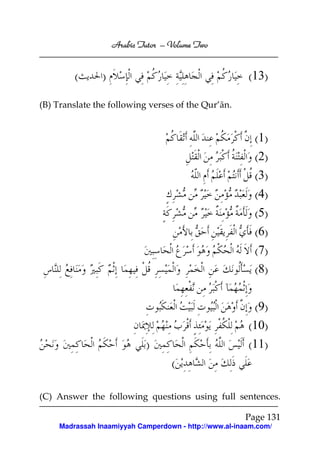 Arabic Tutor – Volume Two
(13) خِيَارُكُمْ فِي الْجَاهِلِيَّةِ خِيَارُكُمْ فِي الْإِسْلَامِ (الحديث)
(B) Translate the following verses of the Qur’ân.
(1) إِنَّ أَكْرَمَكُمْ عِندَ اللَّهِ أَتْقَاكُمْ
(2) وَالْفِتْنَةُ أَكْبَرُ مِنَ الْقَتْلِ
(3) قُلْ أَأَنتُمْ أَعْلَمُ أَمِ اللَّهُ
(4) وَلَعَبْدٌ مُّؤْمِنٌ خَيْرٌ مِّن مُّشْرِكٍ
(5) وَلَأَمَةٌ مُّؤْمِنَةٌ خَيْرٌ مِّن مُّشْرِكَةٍ
(6) فَأَيُّ الْفَرِيقَيْنِ أَحَقُّ بِالأَمْنِ
(7) أَلاَ لَهُ الْحُكْمُ وَهُوَ أَسْرَعُ الْحَاسِبِينَ
(8) يَسْأَلُونَكَ عَنِ الْخَمْرِ وَالْمَيْسِرِ قُلْ فِيهِمَا إِثْمٌ كَبِيرٌ وَمَنَافِعُ لِلنَّاسِ
وَإِثْمُهُمَا أَكْبَرُ مِن نَّفْعِهِمَا
(9) وَإِنَّ أَوْهَنَ الْبُيُوتِ لَبَيْتُ الْعَنكَبُوتِ
(10) هُمْ لِلْكُفْرِ يَوْمَئِذٍ أَقْرَبُ مِنْهُمْ لِلإِيمَانِ
(11) أَلَيْسَ اللَّهُ بِأَحْكَمِ الْحَاكِمِينَ (بَلَي وَهُوَ أَحْكَمُ الْحَاكِمِينَ وَنَحْنُ
عَلَي ذَلِكَ مِنَ الشَّاهِدِيْنَ)
(C) Answer the following questions using full sentences.
Page 131
Madrassah Inaamiyyah Camperdown - http://www.al-inaam.com/